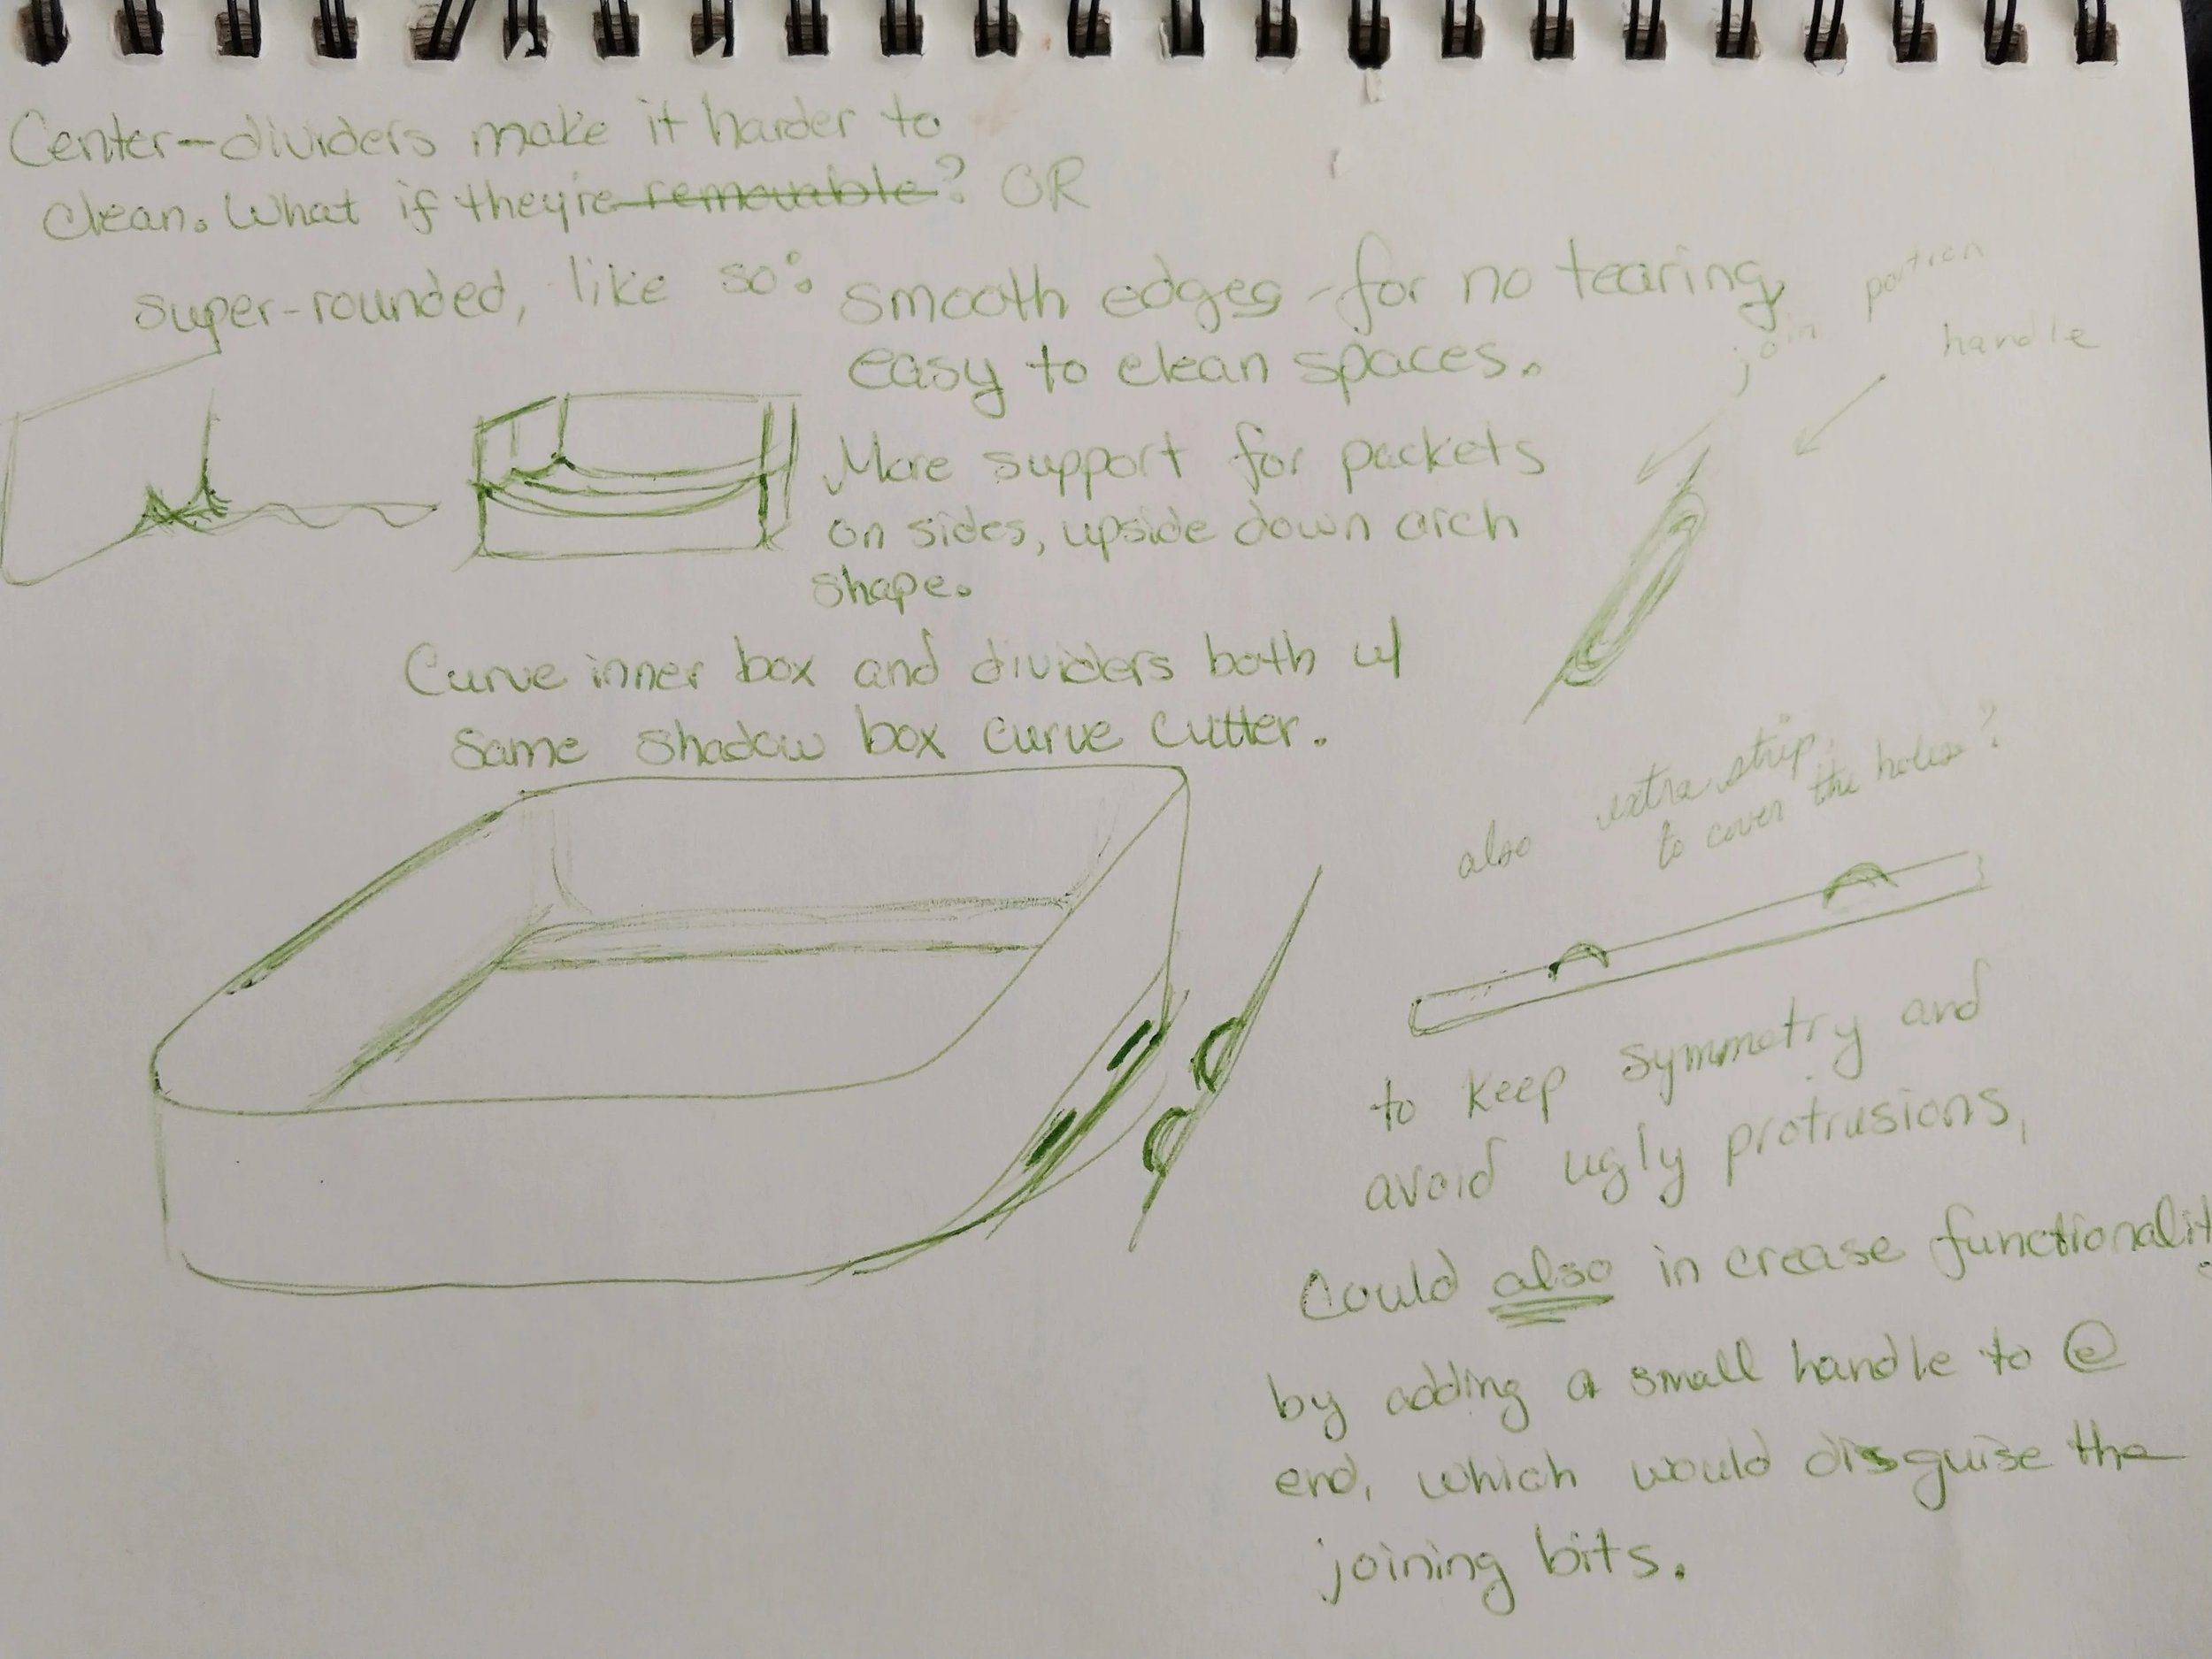 Center-dividers make it harder to
clean. What if they're removable? OR
super-rounded, like so:
smooth edges - for no tearing,
easy to clean spaces.
More support for packets
on sides, upside down arch
shape.
join portion
handle
Curve inner box and dividers both w/
same shadow box curve cutter.
also extra strip
to cover the holes?
to keep symmetry and
avoid ugly protrusions,
Could also in crease functionalit
by adding a small handle to @
end, which would disguise the
joining bits.